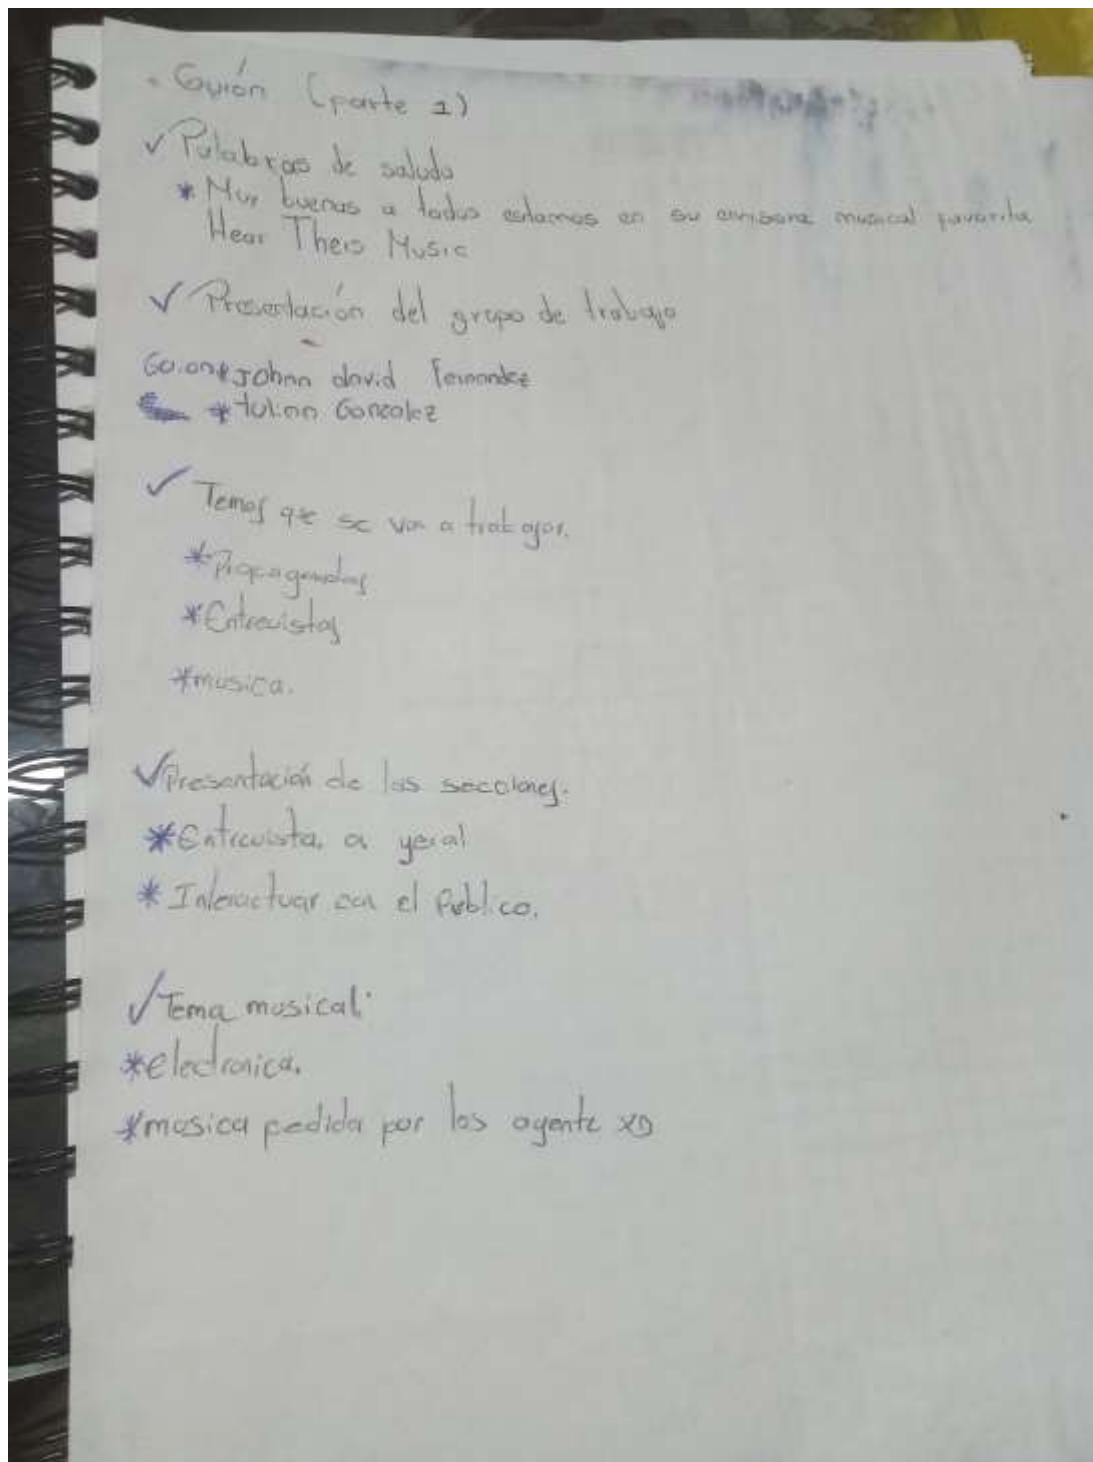 . Guión (parte 1)
✓ Palabras de saludo
* Muy buenas a todos estamos en su emisora musical favorita
Hear Theis Music
✓ Presentación del grupo de trabajo
Guion * Johan david Fernandez
* Julian Gonzalez
✓ Temas que se van a trabajar.
* Propagandas
* Entrevistas
* musica.
✓ Presentación de las secciones.
* Entrevista a yeral
* Interactuar con el Publico.
✓ Tema musical:
* electronica.
* musica pedida por los oyente xD